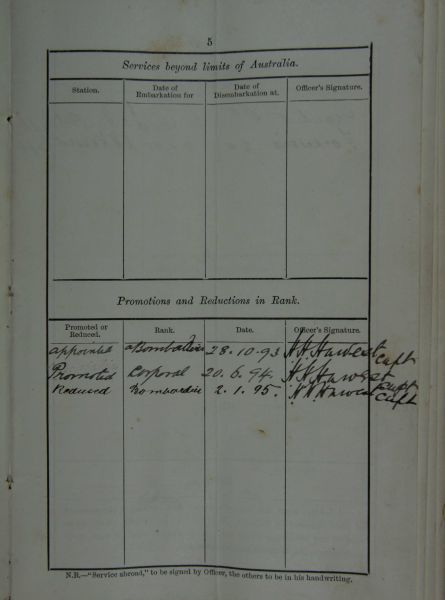 5
Services beyond limits of Australia.
Station. Date of Embarkation for Date of Disembarkation at. Officer's Signature.
Promotions and Reductions in Rank.
Promoted or Reduced. Rank. Date. Officer's Signature.
appointed a Bombadier 28.10.93 Capt
Promoted Corporal 20.6.94. Capt
Reduced Bombardier 2.1.95. Capt
N.B.—"Service abroad," to be signed by Officer, the others to be in his handwriting.